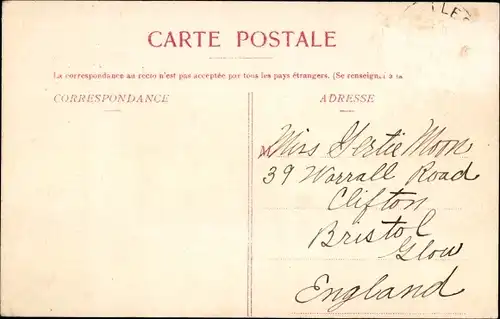 CARTE POSTALE
La correspondance au recto n'est pas acceptée par tous les pays étrangers. (Se renseign à la
CORRESPONDANCE
ADRESSE
M Miss Gertie Moon
39 Worrall Road
Clifton
Bristol
Glou
England